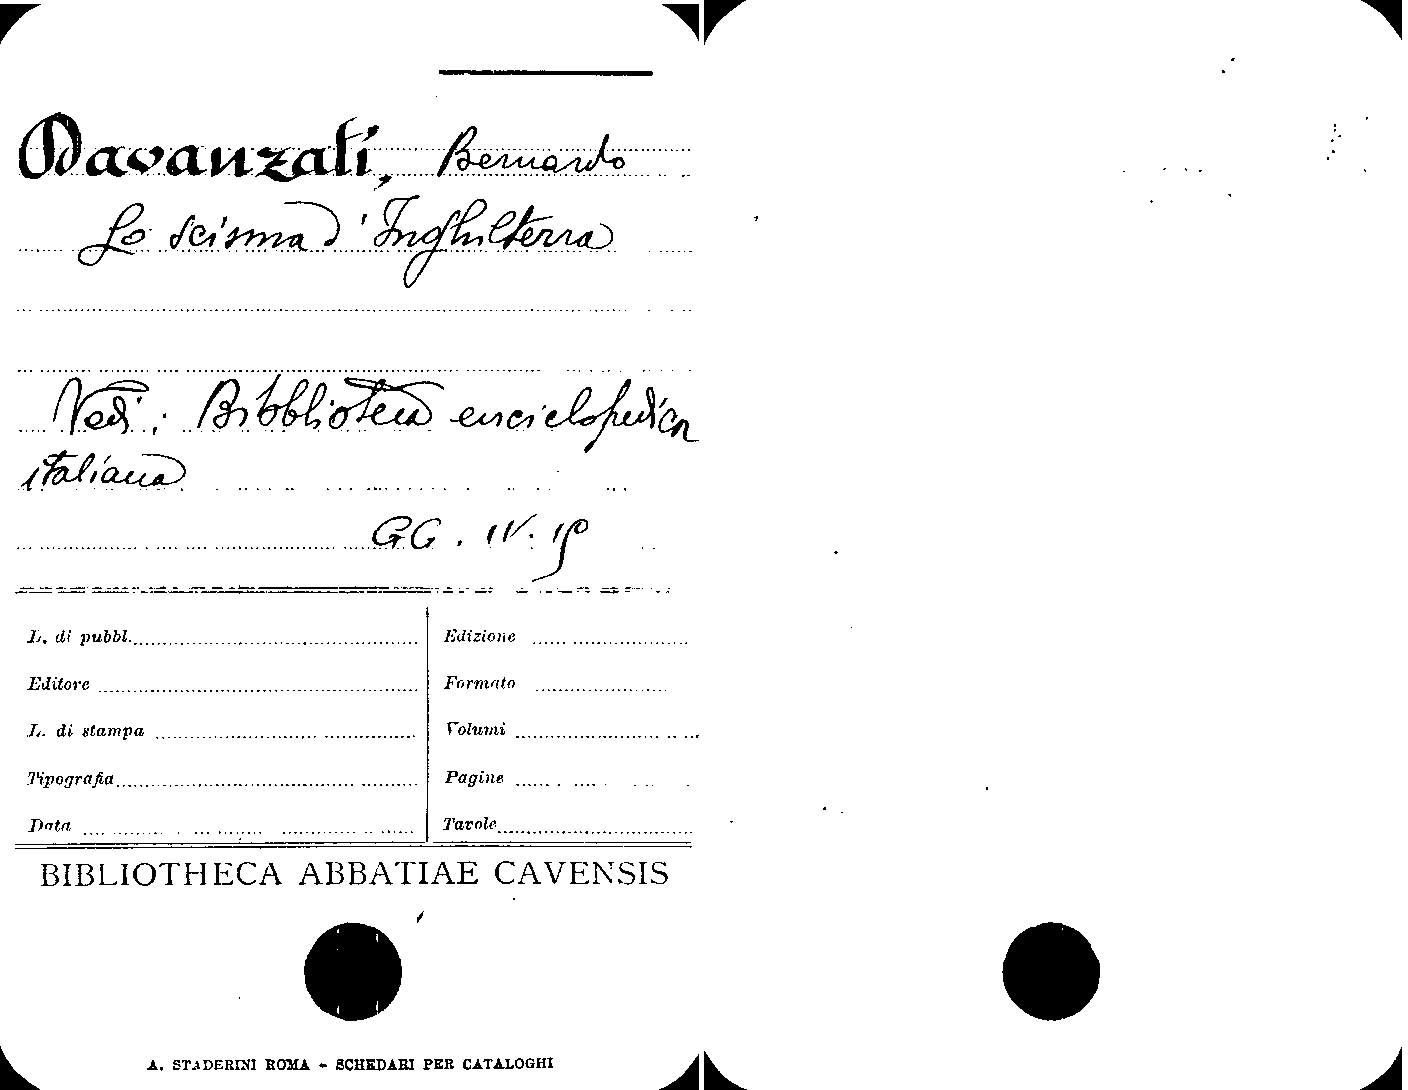 Davanzati, Bernardo
Lo scisma d'Inghilterra
Vedi: Biblioteca enciclopedica
italiana
GG. IV.
L. di pubbl.
Edizione
Editore
Formato
L. di stampa
Volumi
Tipografia
Pagine
Data
Tavole
BIBLIOTHECA ABBATIAE CAVENSIS
A. STADERINI ROMA - SCHEDARI PER CATALOGHI